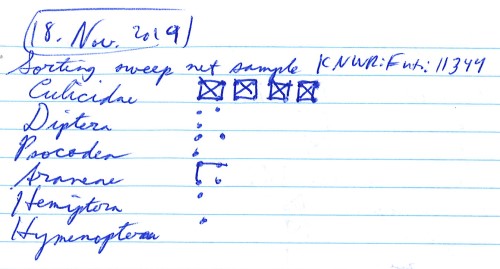 18. Nov. 2019
Sorting sweep net sample KNWR:Ento:11349
Culicidae
Diptera
Psocodea
Araneae
Hemiptera
Hymenoptera